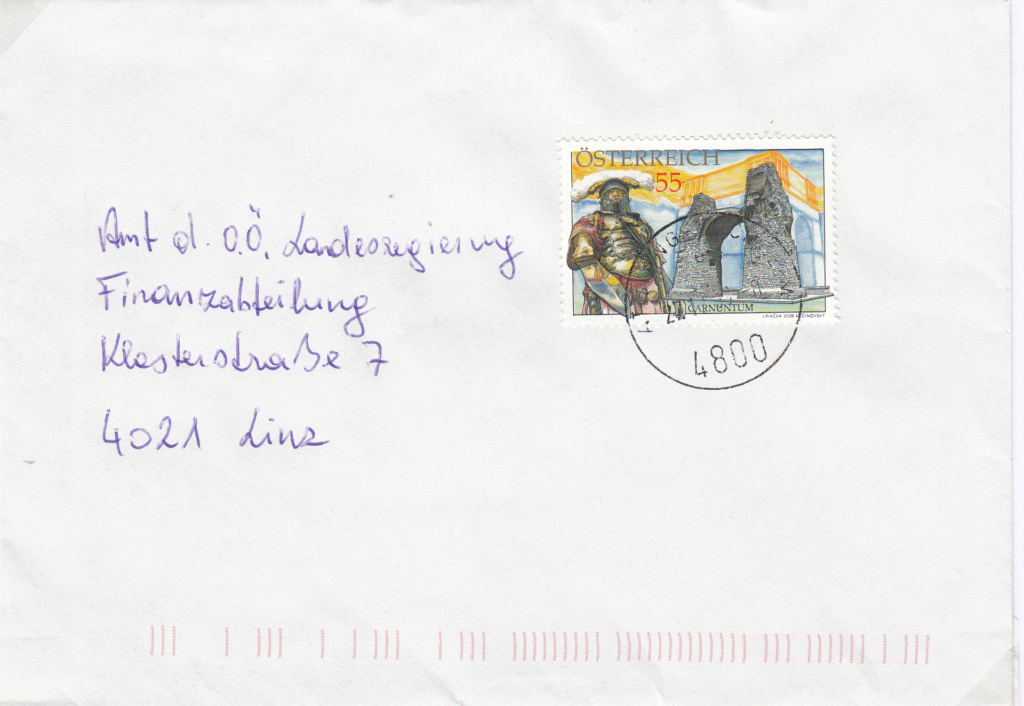 ÖSTERREICH
55
CARNUNTUM
4800
Amt d. O.Ö. Landesregierung
Finanzabteilung
Klosterstraße 7
4021 Linz